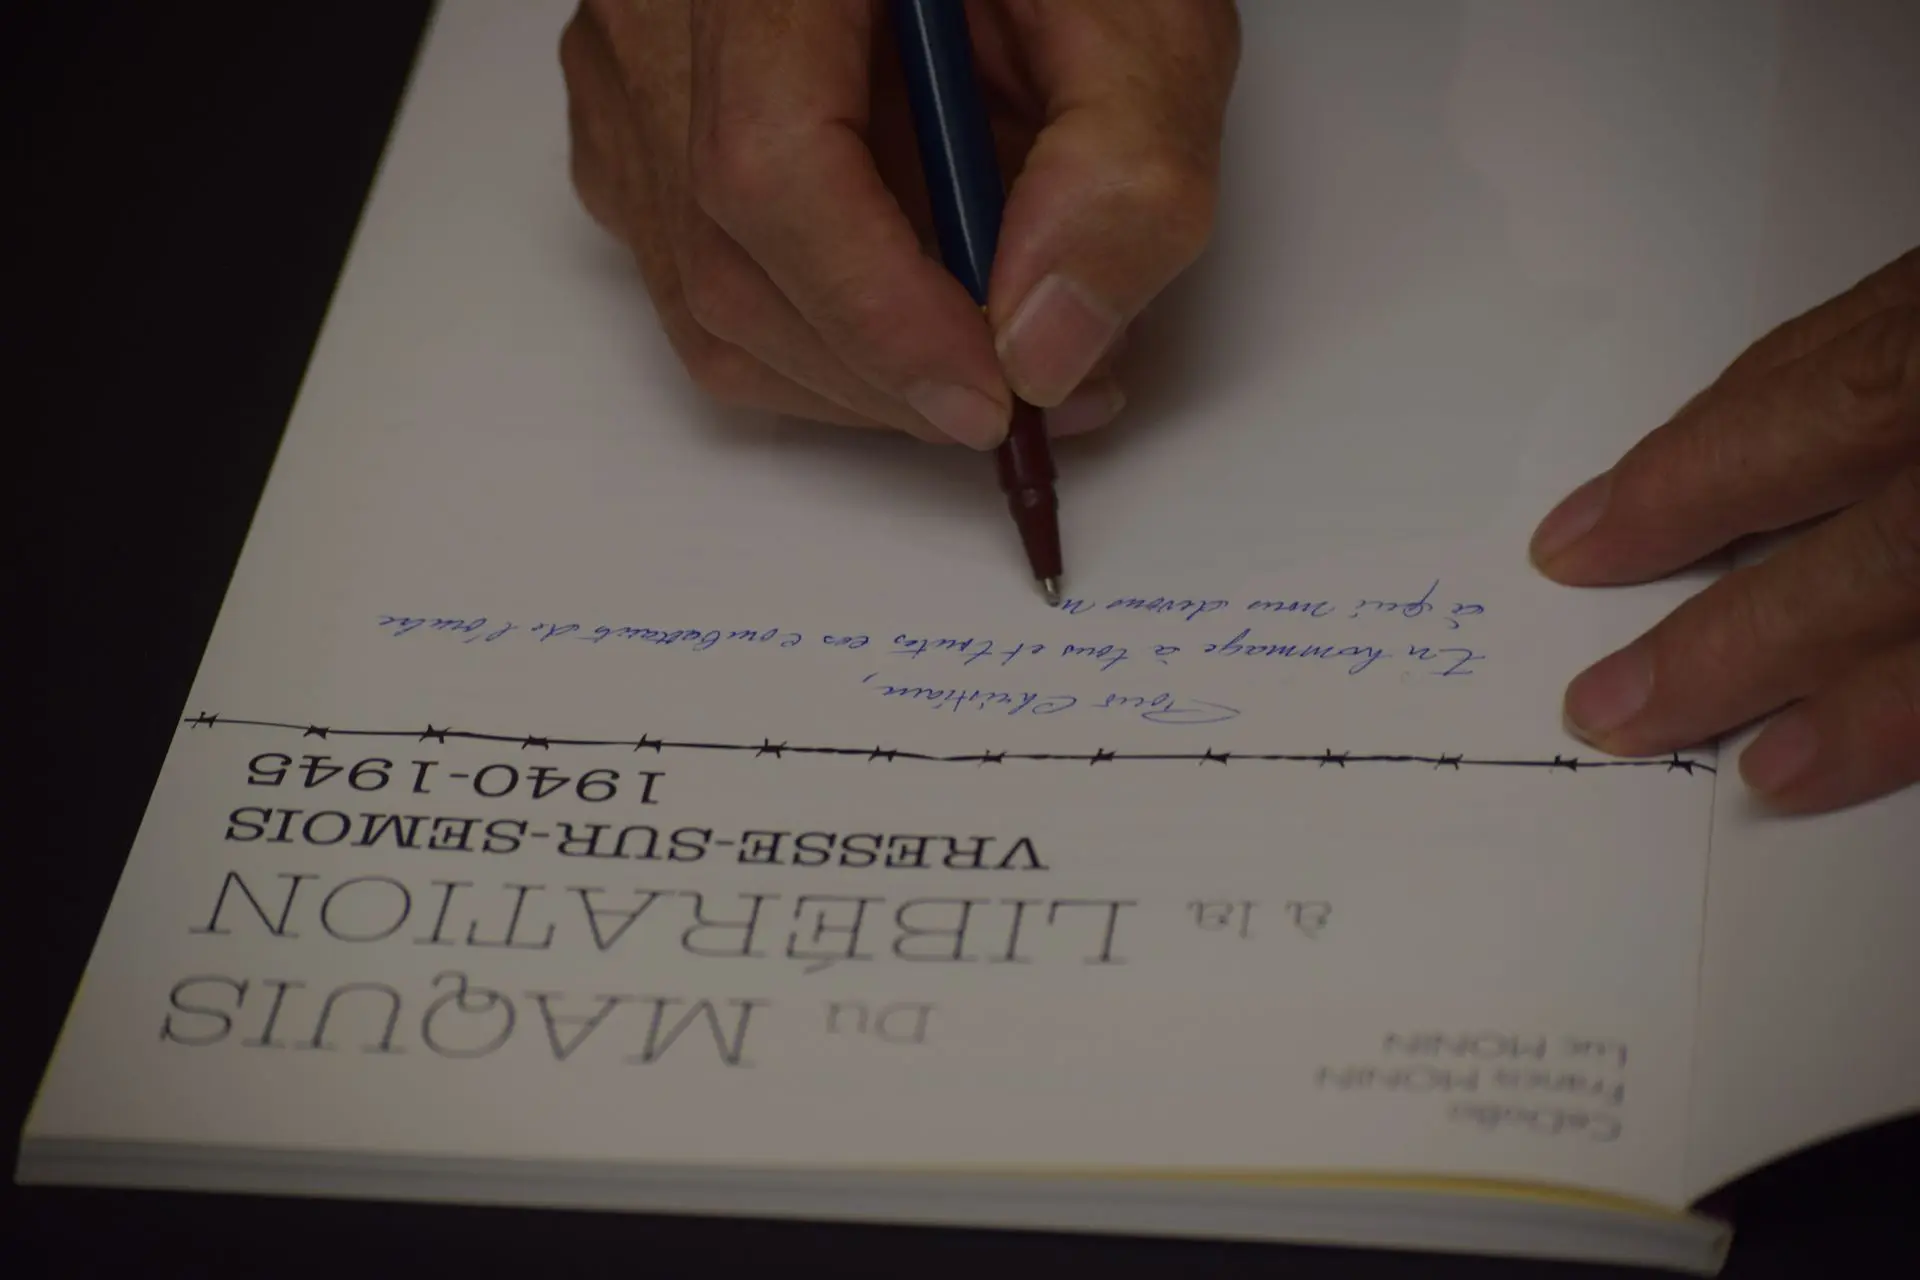 CeDoBo
Francis MONIN
Luc MONIN
Du MAQUIS
à la LIBÉRATION
VRESSE-SUR-SEMOIS
1940-1945
Pour Christian,
En hommage à tous et toutes ces combattants de l'ombre
à qui nous devons n